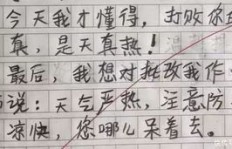 今天我才懂得，打败你的
真，是天真热！
最后，我想对批改我作
说：天气严热，注意防
凉快，您哪儿呆着去。